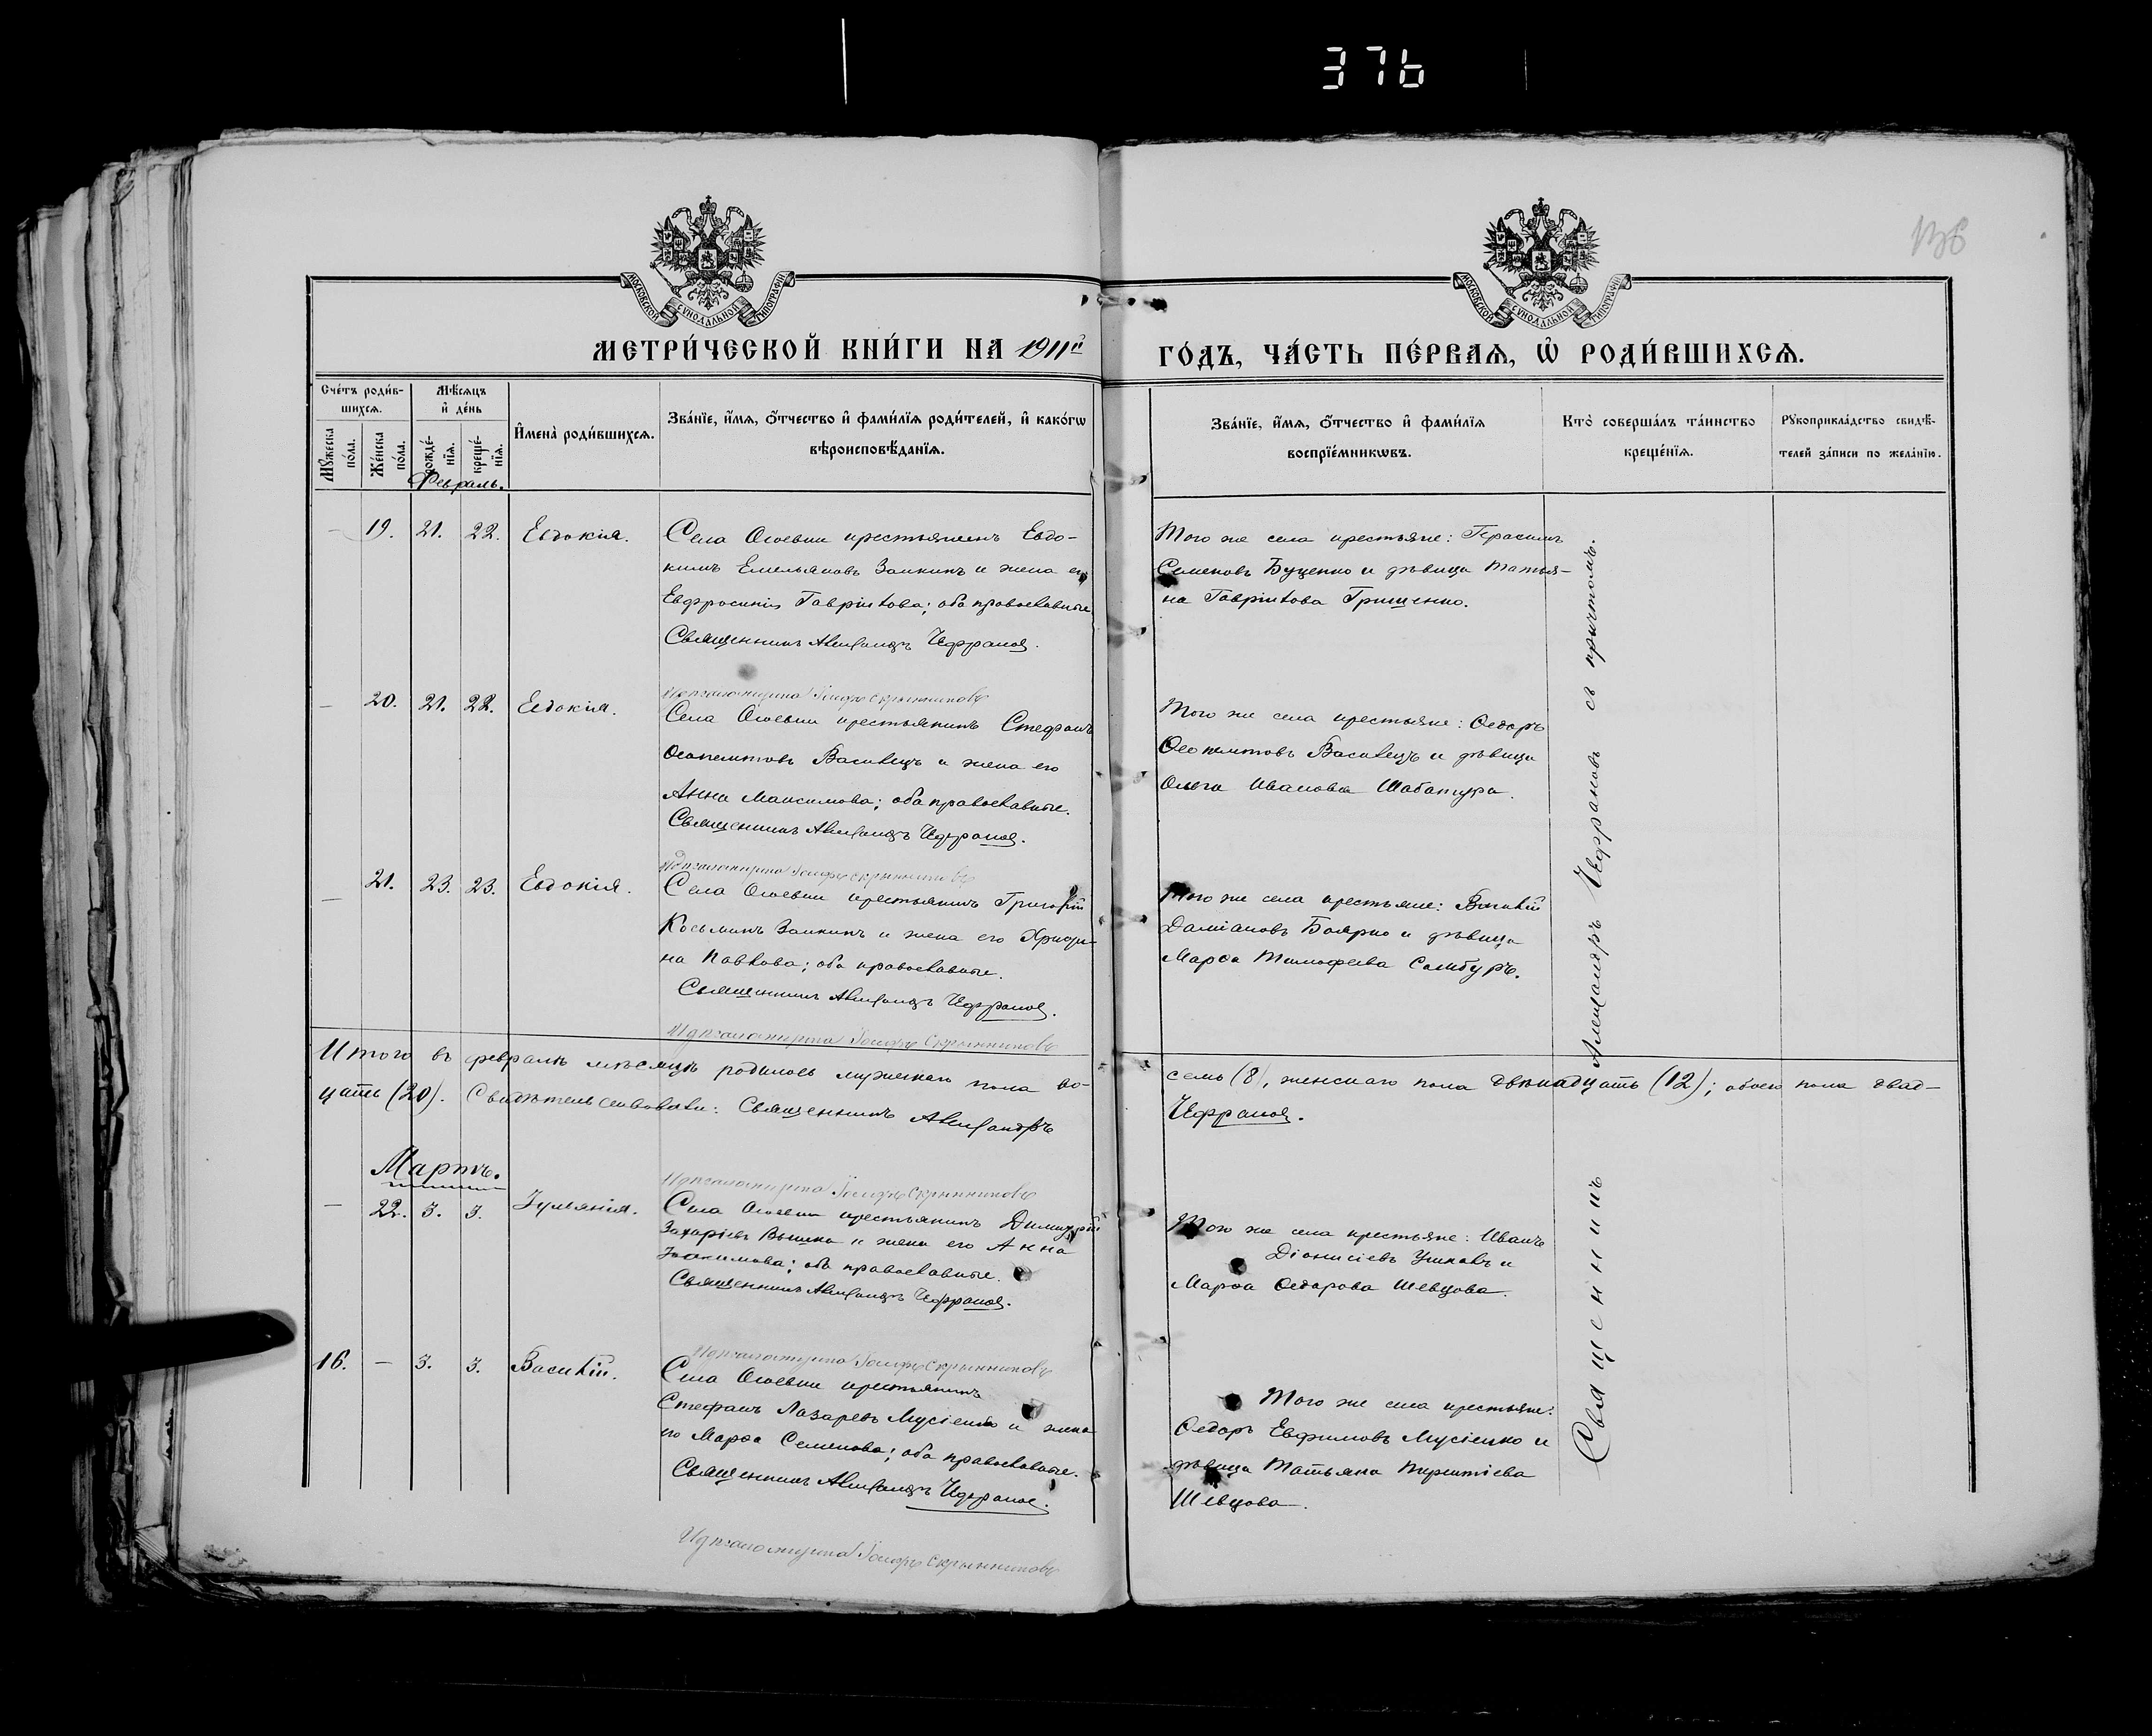 376
136
МОСКОВСКОЙ СѴНОДАЛЬНОЙ ТИПОГРАФІИ
МОСКОВСКОЙ СѴНОДАЛЬНОЙ ТИПОГРАФІИ
МЕТРИ́ЧЕСКОЙ КНИ́ГИ НА 1911й
ГО́ДЪ, ЧА́СТЬ ПЕ́РВАѦ, Ѡ҆ РОДИ́ВШИХСѦ.
Сче́тъ роди́в-
шихсѧ.
Мꙋ́жеска по́ла.
Же́нска по́ла.
Мѣ́сѧцъ
и҆ де́нь
рожде́-
нїѧ.
креще́-
нїѧ.
И҆мена̀ роди́вшихсѧ.
Зва́нїе, и҆́мѧ, ѻ҆́тчество и҆ фами́лїѧ роди́телей, и҆ како́гѡ
вѣроисповѣ́данїѧ.
Зва́нїе, и҆́мѧ, ѻ҆́тчество и҆ фами́лїѧ
воспрїе́мникѡвъ.
Кто̀ соверша́лъ та́инство
креще́нїѧ.
Рꙋкоприкла́дство свидѣ́-
телей за́писи по жела́нїю.
Февраль.
– 19. 21. 22. Евдокія.
Села крестьянинъ Евдо-
кимъ Емельяновъ Заикинъ и жена его
Евфросинія Гавріилова; оба православные
Священникъ Александръ Чефрановъ.
Того же села крестьяне: Герасимъ
Семеновъ Буценко и дѣвица Татья-
на Гавріилова Грищенко.
– 20. 21. 22. Евдокія.
И. д. псаломщика Іосифъ Скрынниковъ
Села крестьянинъ Стефанъ
Ѳеопемптовъ Василецъ и жена его
Анна Максимова; оба православные.
Священникъ Александръ Чефрановъ.
Того же села крестьяне: Ѳедоръ
Ѳеопемптовъ Василецъ и дѣвица
Ольга Иванова Шабатура.
– 21. 23. 23. Евдокія.
И. д. псаломщика Іосифъ Скрынниковъ
Села крестьянинъ Григорій
Косьминъ Заикинъ и жена его Христи-
на Павлова; оба православные.
Священникъ Александръ Чефрановъ.
Того же села крестьяне: Василій
Даміановъ Боярко и дѣвица
Марѳа Тимофеева Самбуръ.
И. д. псаломщика Іосифъ Скрынниковъ
Итого въ февралѣ мѣсяцѣ родилось мужескаго пола во-
семь (8), женскаго пола двѣнадцать (12); обоего пола двад-
цать (20). Свидѣтельствовали: Священникъ Александръ
Чефрановъ.
Мартъ.
И. д. псаломщика Іосифъ Скрынниковъ
– 22. 3. 3. Іуліанія.
Села крестьянинъ Димитрій
Захаріевъ и жена его Анна
Іоакимова; оба православные.
Священникъ Александръ Чефрановъ.
Того же села крестьяне: Иванъ
Діонисіевъ Ушкалъ и
Марѳа Ѳедорова Шевцова.
16. – 3. 3. Василій.
И. д. псаломщика Іосифъ Скрынниковъ
Села крестьянинъ
Стефанъ Лазаревъ Мусіенко и жена
его Марѳа Семенова; оба православные.
Священникъ Александръ Чефрановъ.
И д псаломщика Іосифъ Скрынниковъ
Того же села крестьяне:
Ѳедоръ Евфимовъ Мусіенко и
дѣвица Татьяна
Шевцова.
Священникъ Александръ Чефрановъ съ причтомъ.